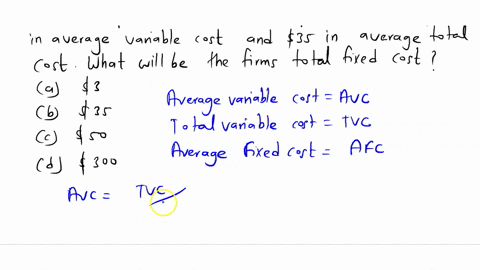 in average variable cost and $35 in average total
cost. What will be the firms total fixed cost?
(a) $3
(b) $35
(c) $50
(d) $300
Average variable cost = AVC
Total variable cost = TVC
Average fixed cost = AFC
AVC = TVC